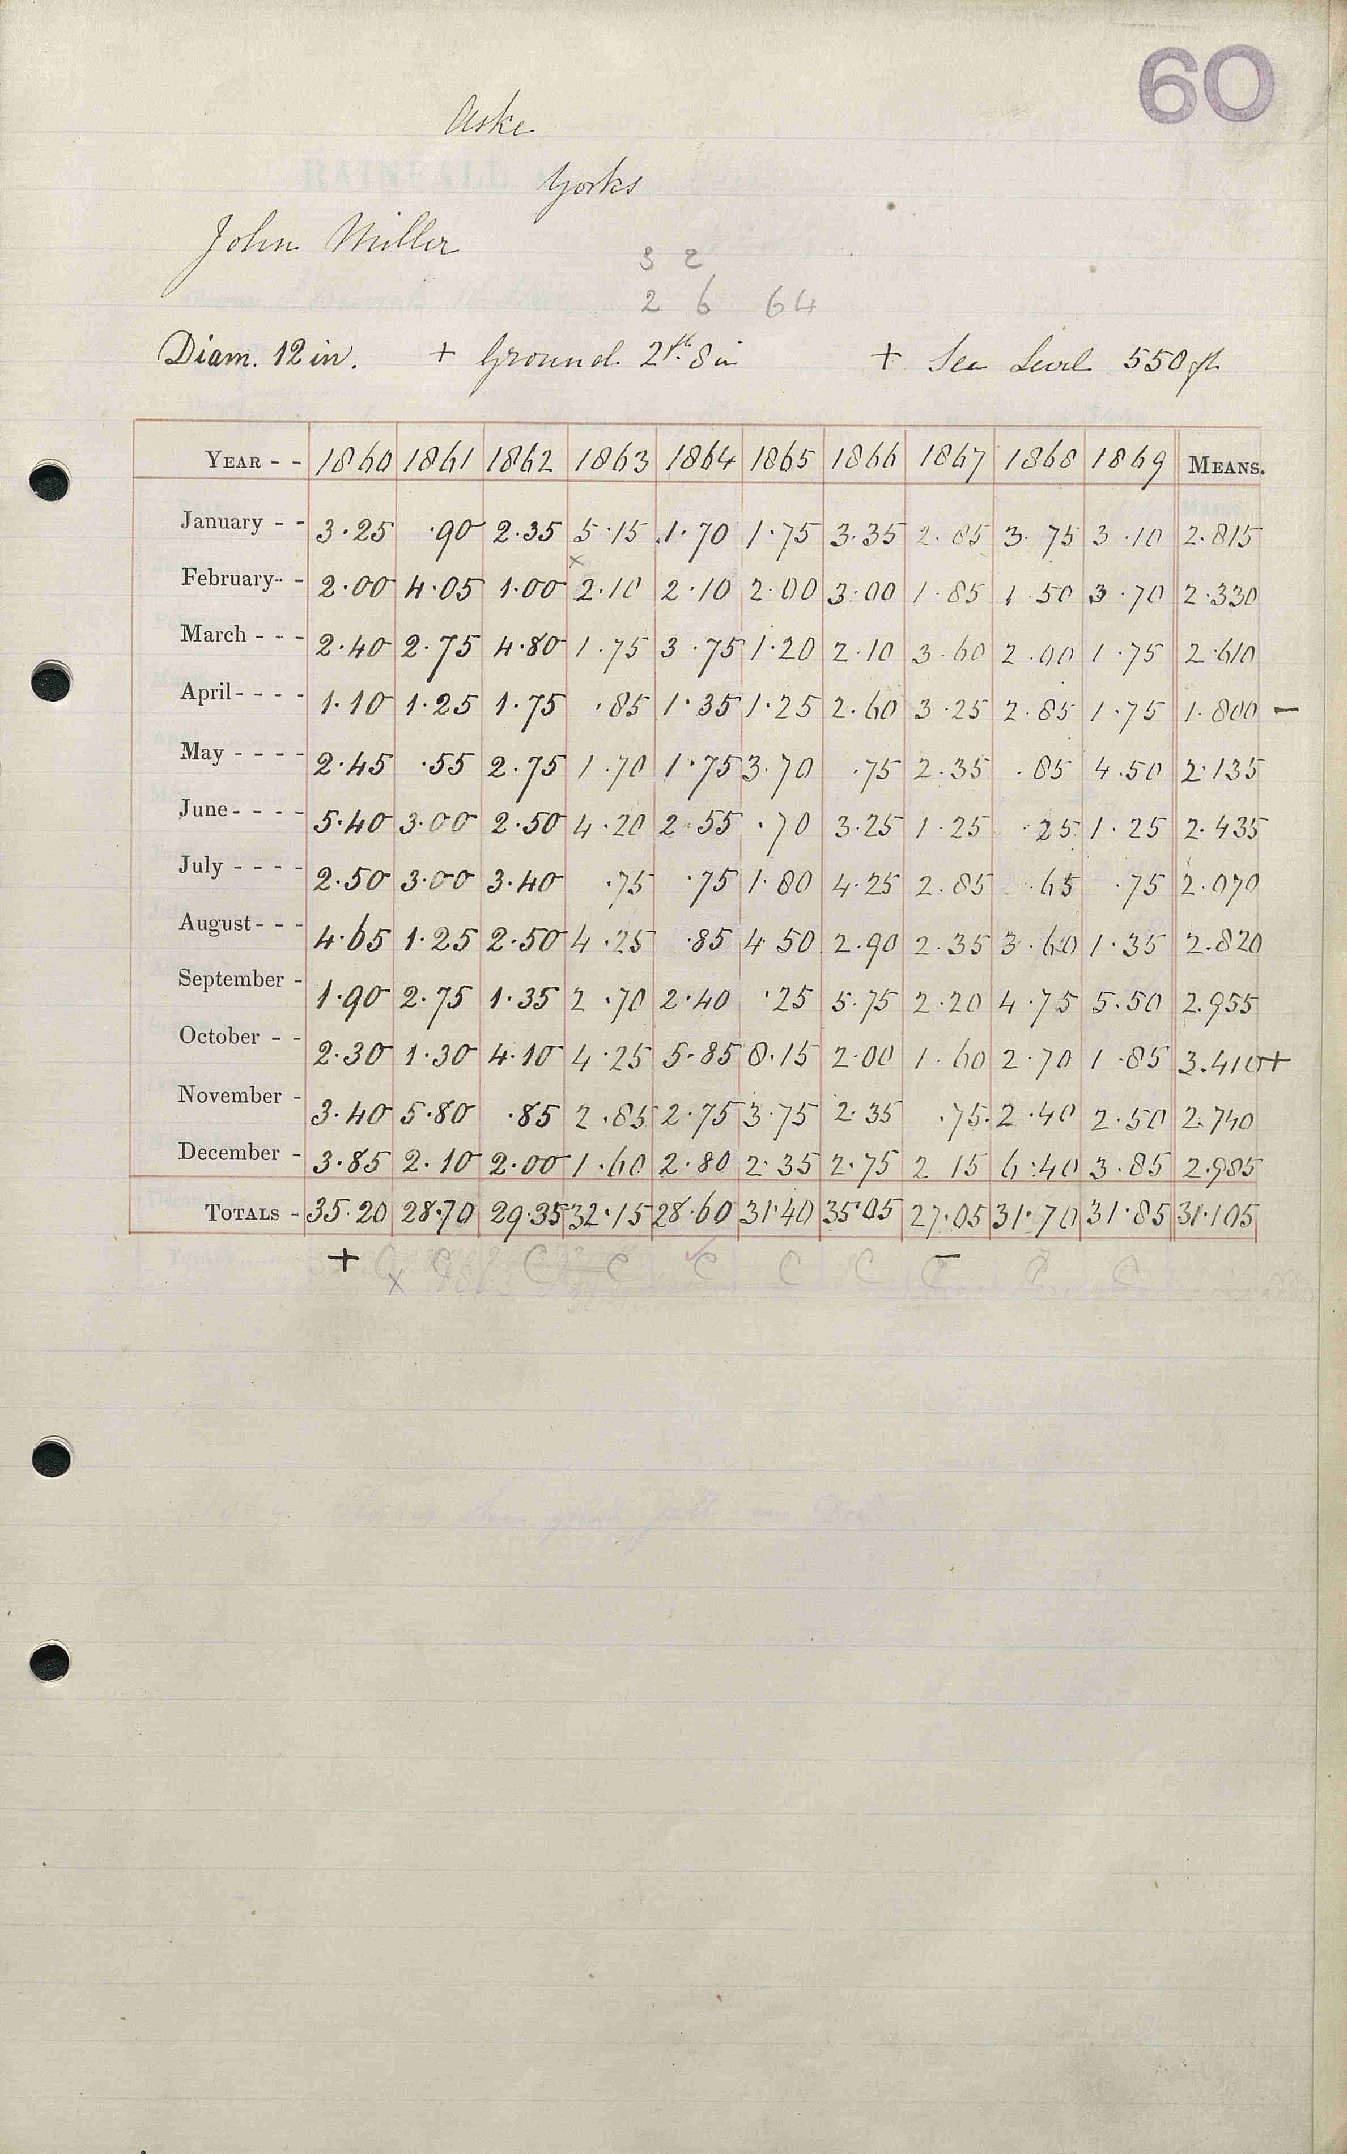 60
Aske
Yorks
John Miller
3 2
2 6 64
Diam. 12 in. + Ground 2ft. 8 in + Sea Level 550 ft
YEAR - - 1860 1861 1862 1863 1864 1865 1866 1867 1868 1869 MEANS.
January - - 3.25 .90 2.35 5.15 1.70 1.75 3.35 2.85 3.75 3.10 2.815
x
February - - 2.00 4.05 1.00 2.10 2.10 2.00 3.00 1.85 1.50 3.70 2.330
March - - - 2.40 2.75 4.80 1.75 3.75 1.20 2.10 3.60 2.00 1.75 2.610
April - - - - 1.10 1.25 1.75 .85 1.35 1.25 2.60 3.25 2.85 1.75 1.800 -
May - - - - 2.45 .55 2.75 1.70 1.75 3.70 .75 2.35 .85 4.50 2.135
June - - - - 5.40 3.00 2.50 4.20 2.55 .70 3.25 1.25 .25 1.25 2.435
July - - - - 2.50 3.00 3.40 .75 .75 1.80 4.25 2.85 .65 .75 2.070
August - - - 4.65 1.25 2.50 4.25 .85 4.50 2.90 2.35 3.60 1.35 2.820
September - 1.90 2.75 1.35 2.70 2.40 .25 5.75 2.20 4.75 5.50 2.955
October - - 2.30 1.30 4.10 4.25 5.85 8.15 2.00 1.60 2.70 1.85 3.410 +
November - 3.40 5.80 .85 2.85 2.75 3.75 2.35 .75 2.40 2.50 2.740
December - 3.85 2.10 2.00 1.60 2.80 2.35 2.75 2.15 6.40 3.85 2.985
TOTALS - 35.20 28.70 29.35 32.15 28.60 31.40 35.05 27.05 31.70 31.85 31.105
+ C C C C C C C - C C C
x